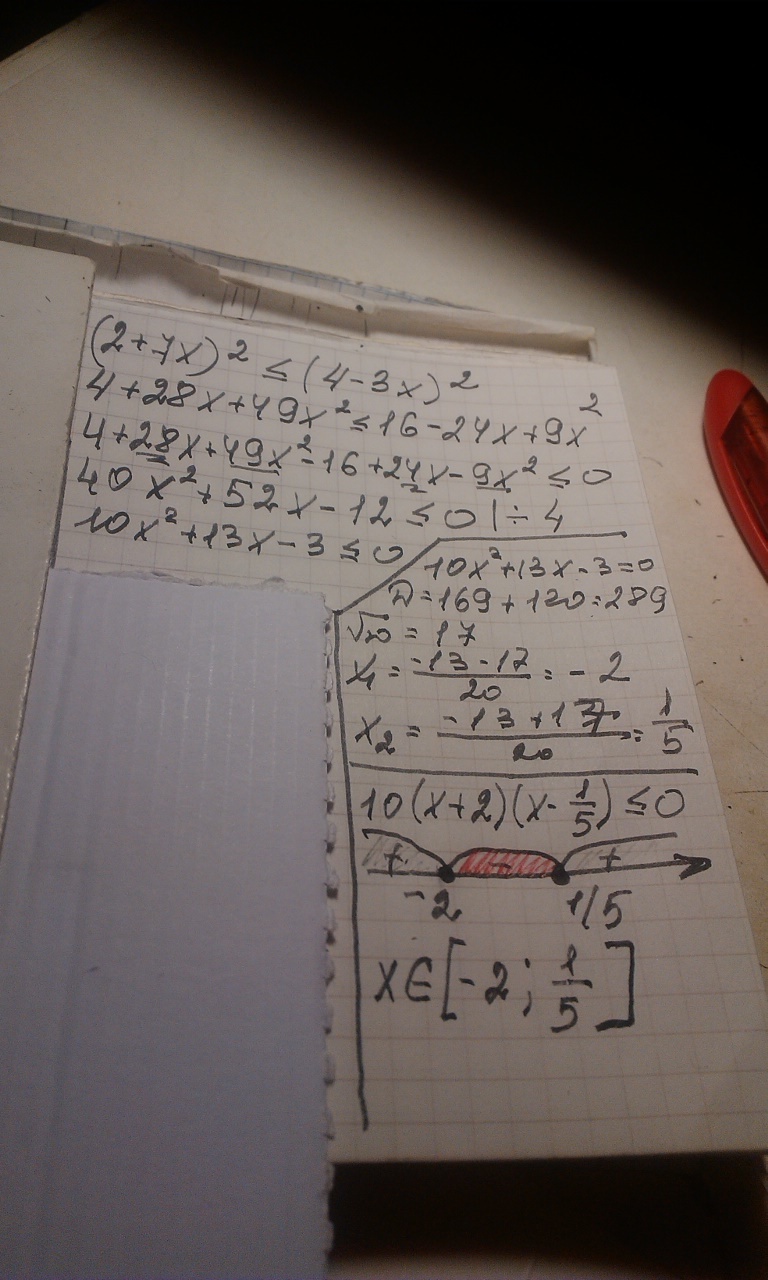 (2+7x)² ≤ (4-3x)²
4+28x+49x² ≤ 16-24x+9x²
4+28x+49x²-16+24x-9x² ≤ 0
40x²+52x-12 ≤ 0 | ÷ 4
10x²+13x-3 ≤ 0
10x²+13x-3=0
D=169+120=289
√D = 17
x₁ = (-13-17)/20 = -2
x₂ = (-13+17)/20 = 1/5
10(x+2)(x-1/5) ≤ 0
+ - +
-2 1/5
x∈[-2; 1/5]